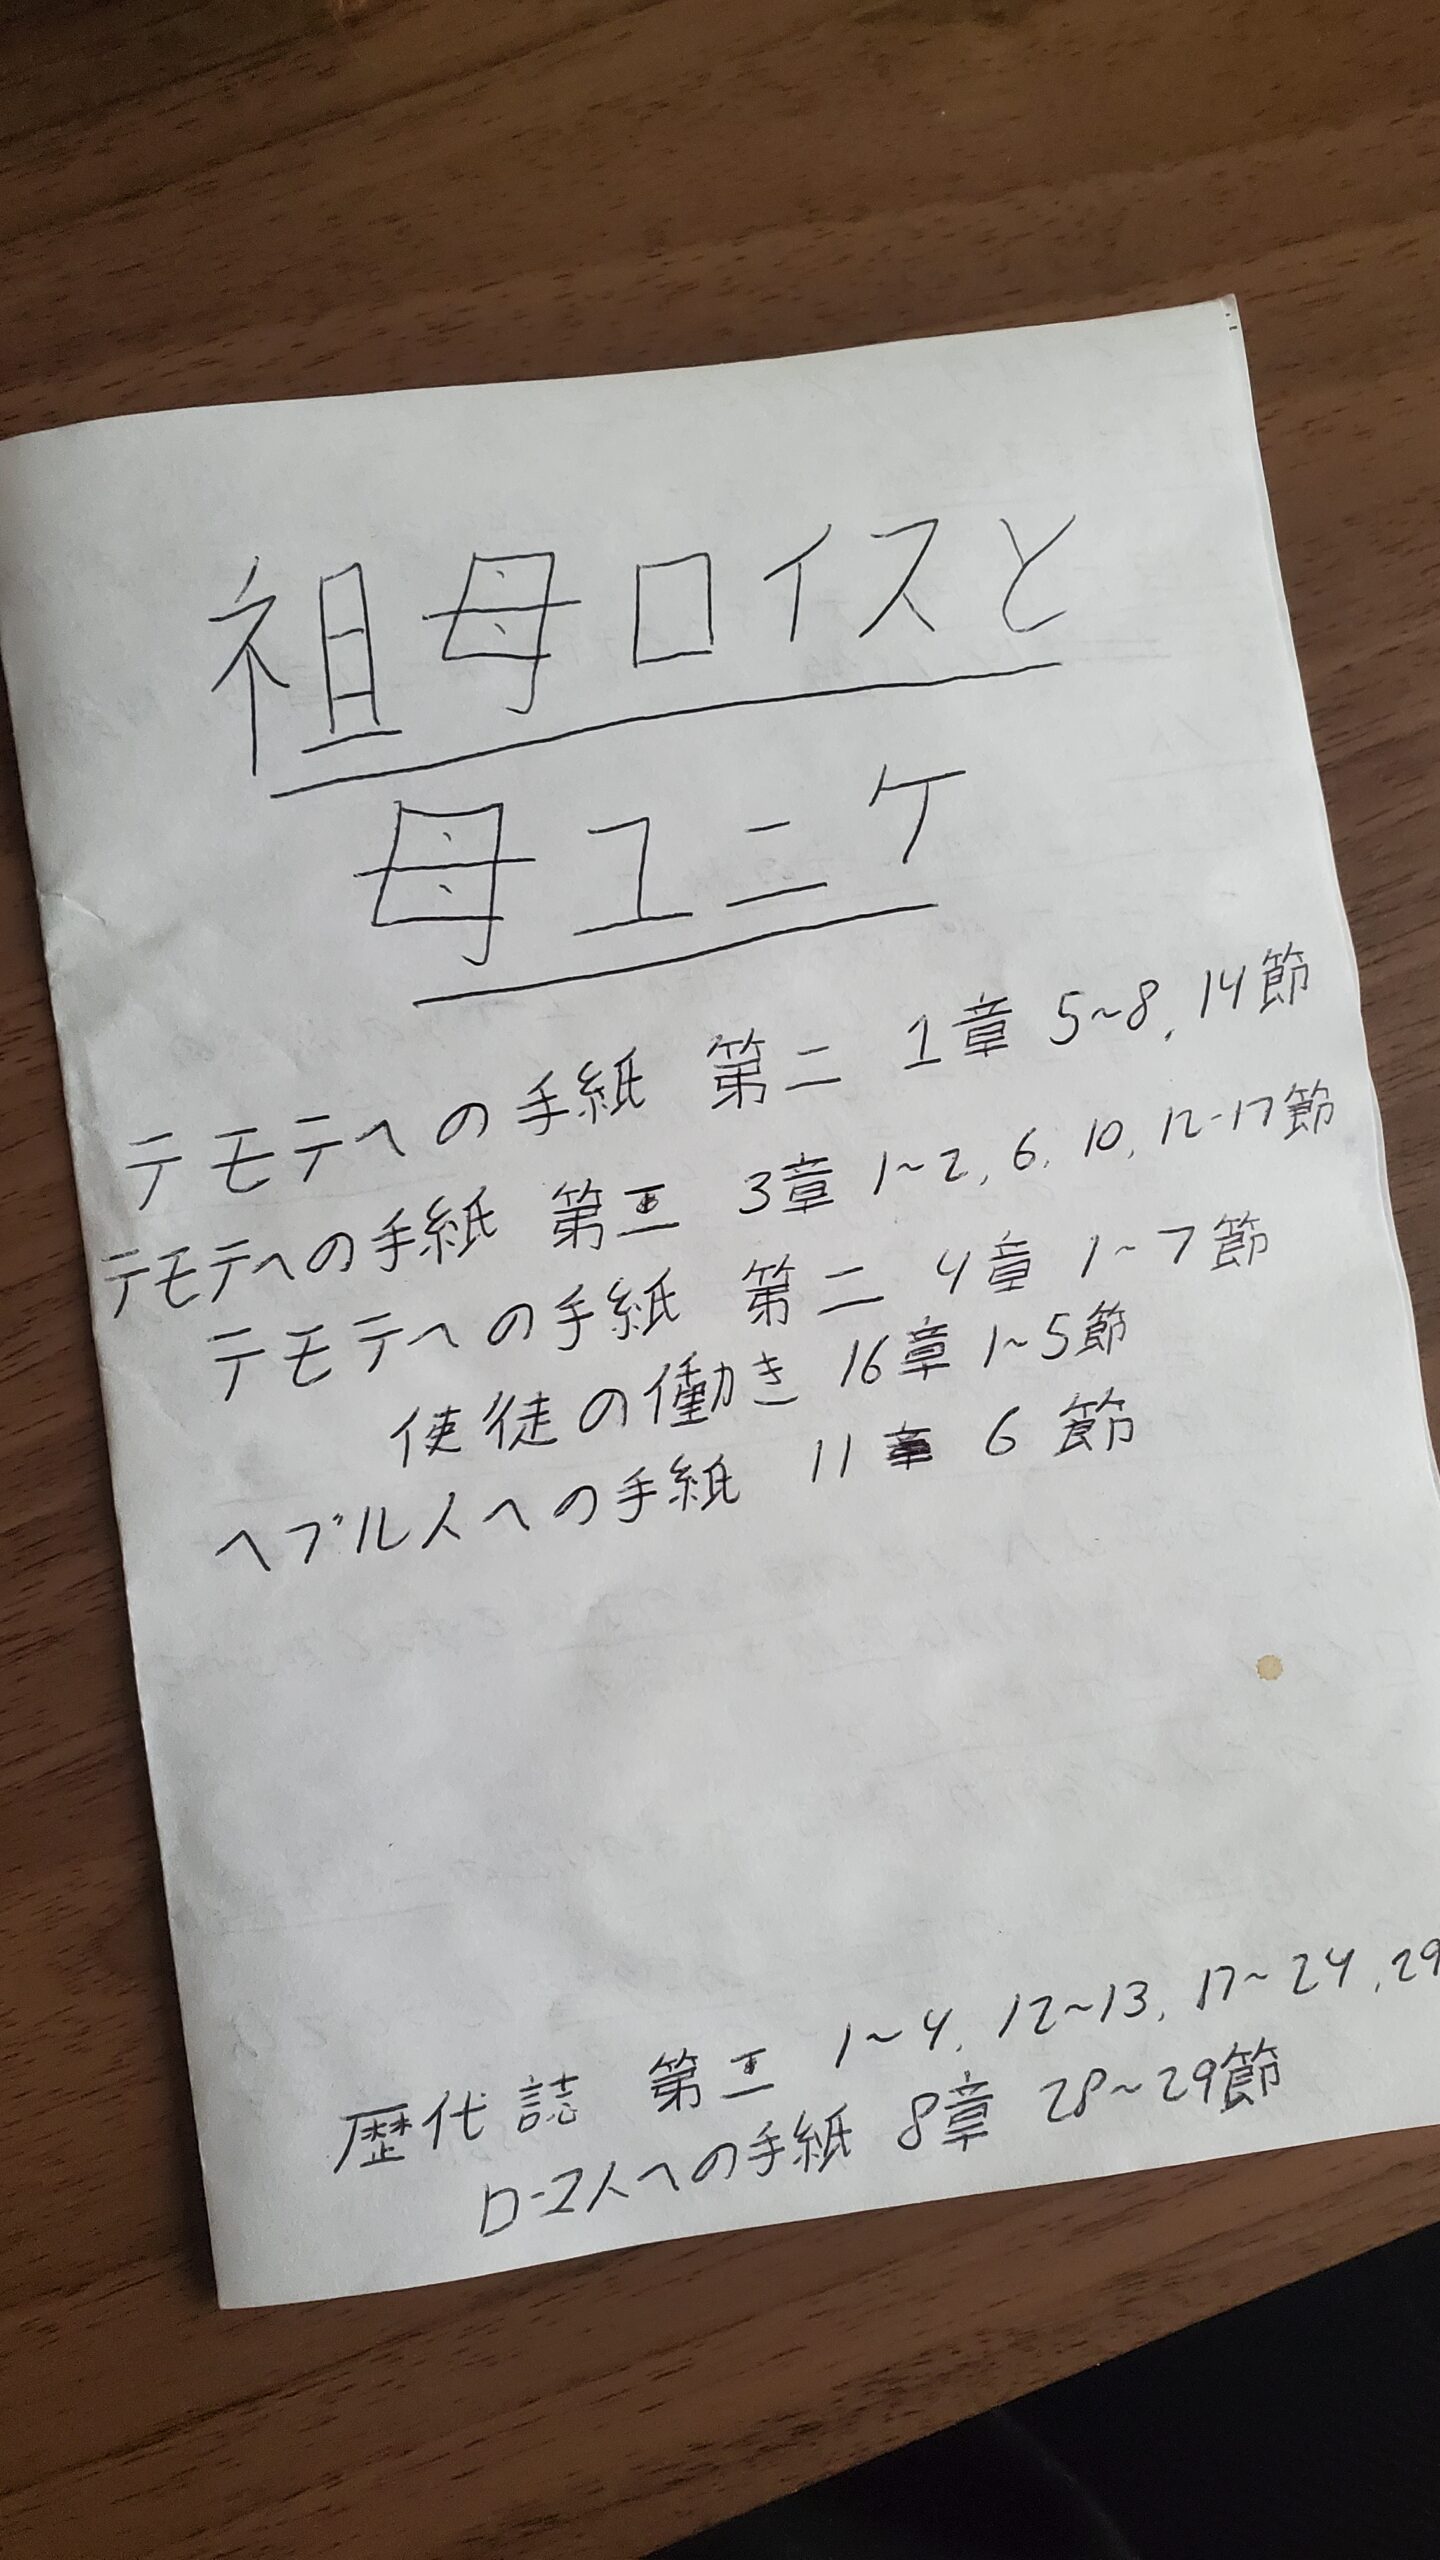 祖母ロイスと
母ユニケ
テモテへの手紙 第二 1章 5~8, 14節
テモテへの手紙 第二 3章 1~2, 6, 10, 12-17節
テモテへの手紙 第二 4章 1~7節
使徒の働き 16章 1~5節
ヘブル人への手紙 11章 6節
歴代誌 第二 1~4, 12~13, 17~24, 29
ローマ人への手紙 8章 28~29節